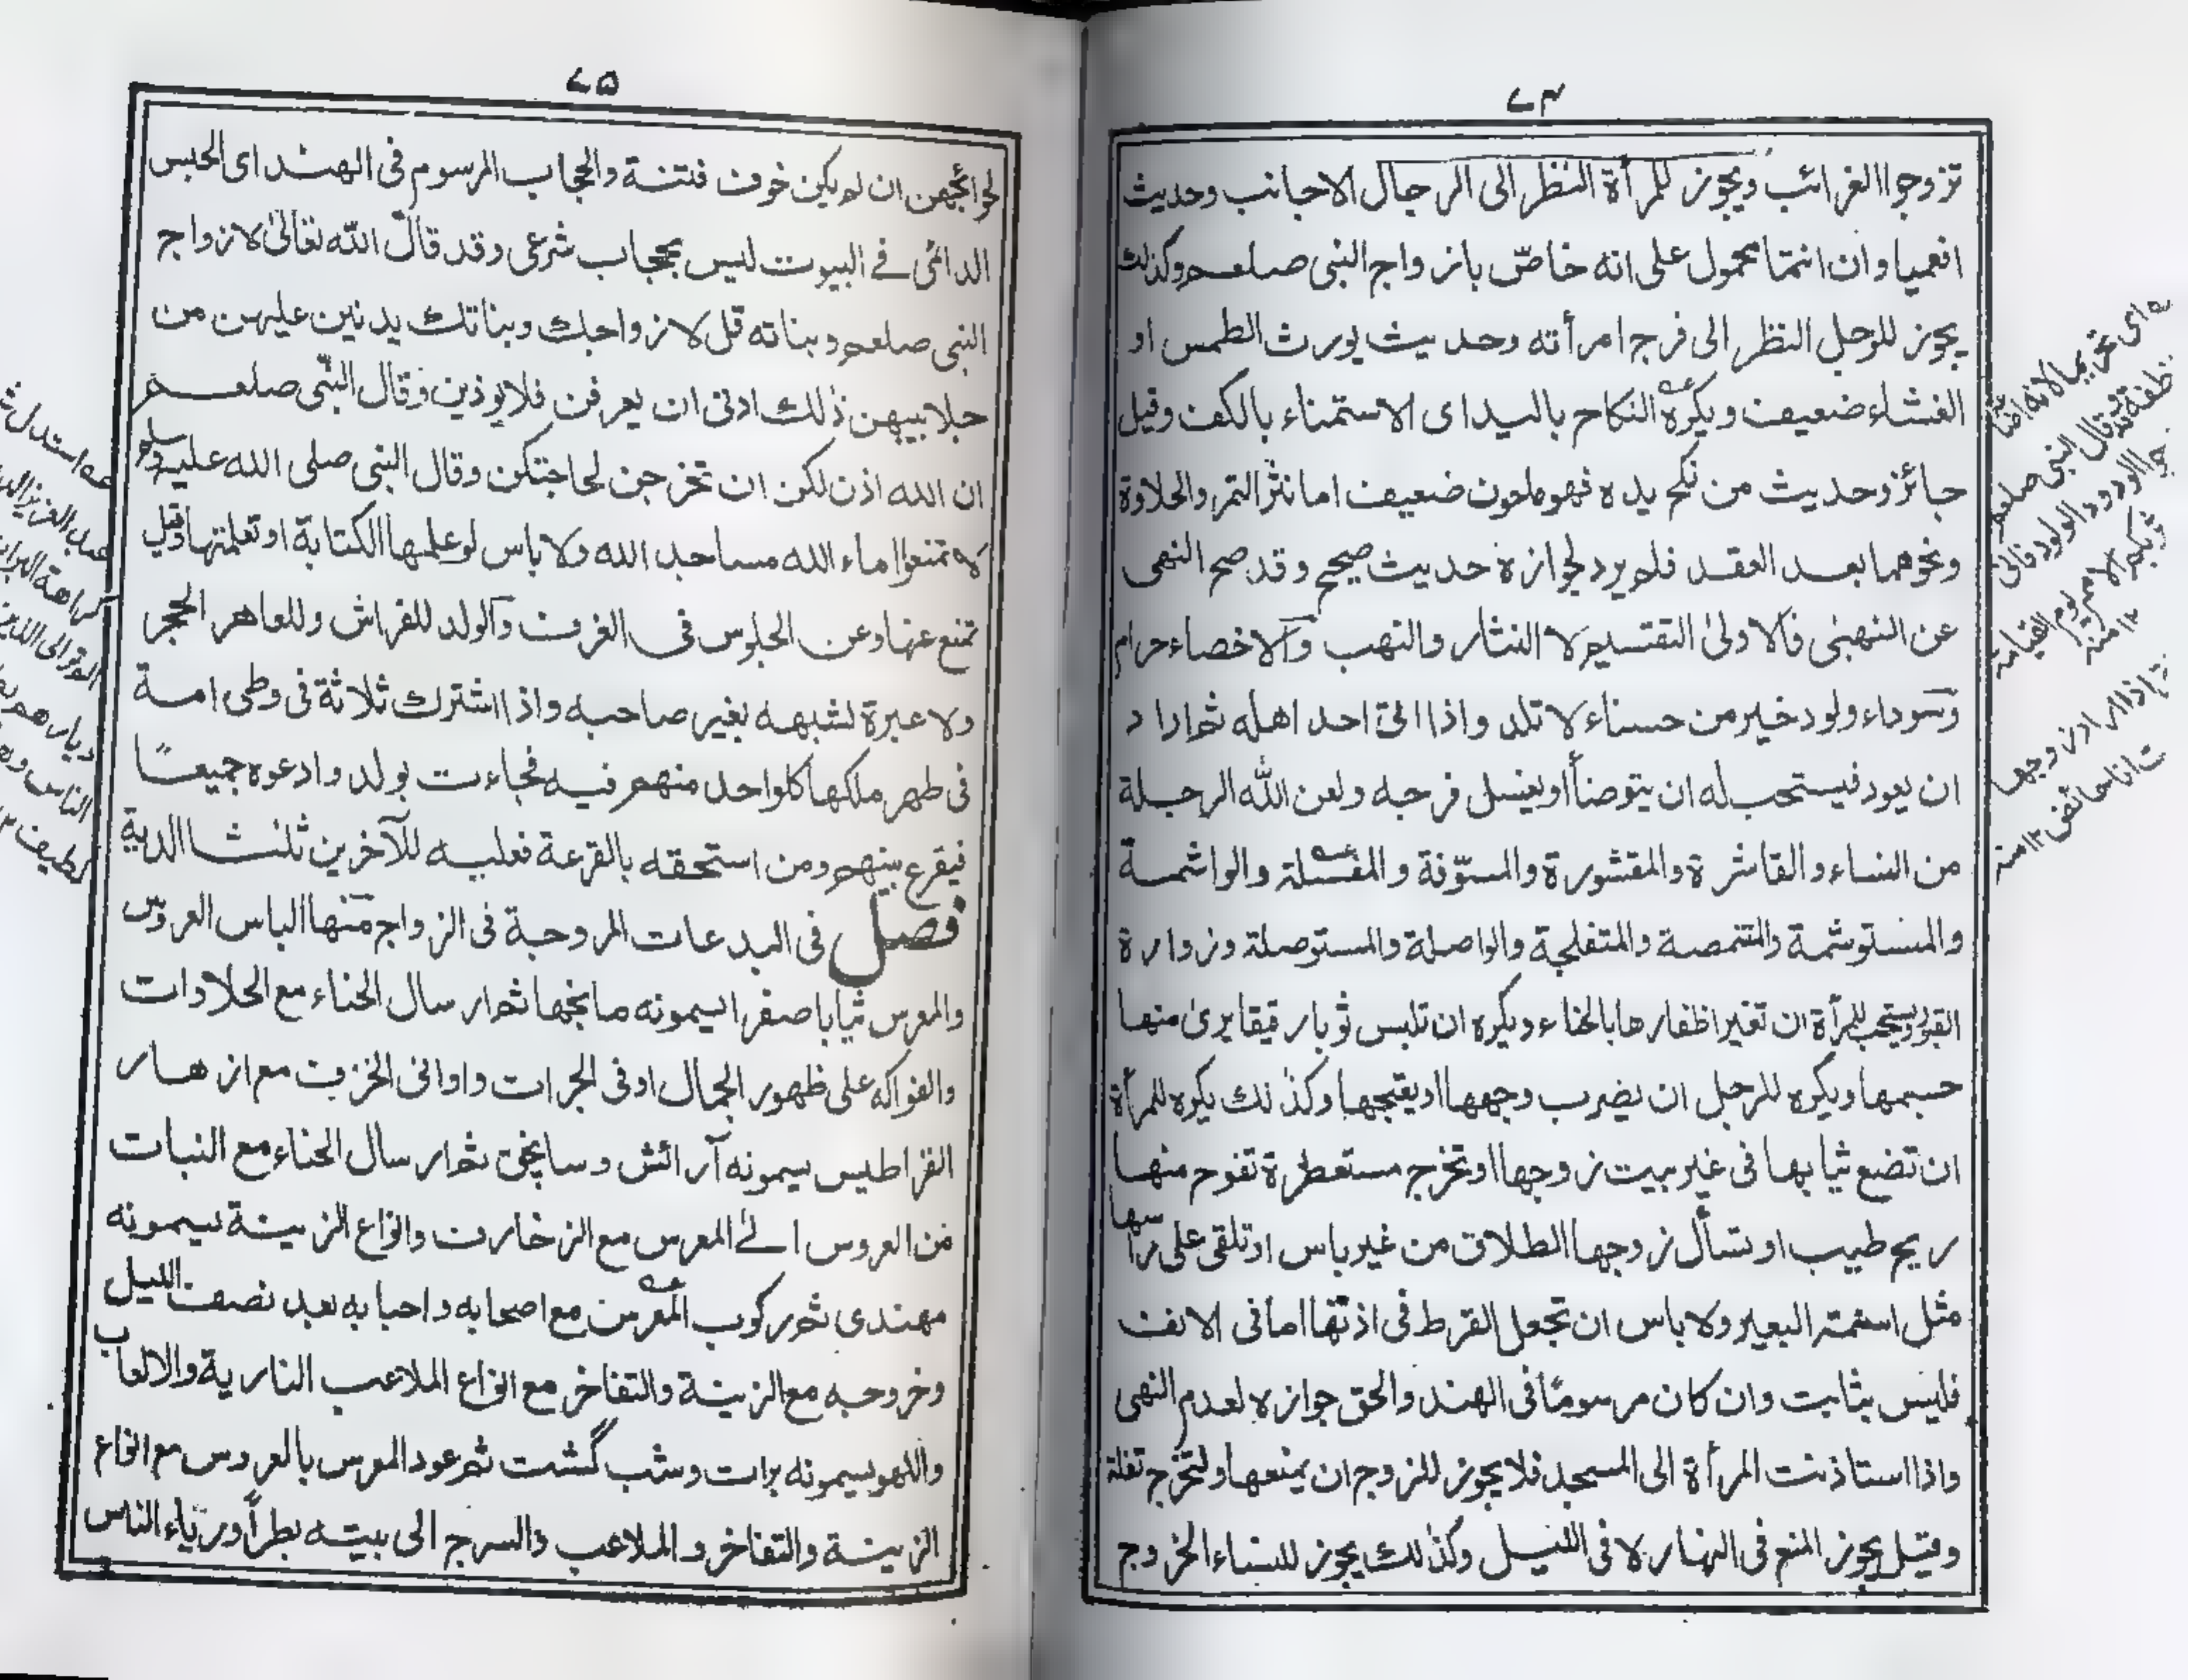 ٧٤
تزوجوا الغرائب ويجوز للمرأة النظر الى الرجال الاجانب وحديث
افعميا وان انتما محمول على انه خاصّ بازواج النبى صلعم وكذلك
يجوز للرجل النظر الى فرج امرأته وحديث يورث الطمس او
الغشاء ضعيف ويكره النكاح باليد اى الاستمناء بالكف وقيل
جائز وحديث من نكح يده فهو ملعون ضعيف اما نثر التمر والحلاوة
ونحوهما بعد العقد فلم يرد لجوازه حديث صحيح وقد صح النهى
عن النهبى فالاولىٰ التقسيم لا النثار والنهب والاخصاء حرام
وسوداء ولود خير من حسناء لا تلد واذا اتى احد اهله ثم اراد
ان يعود فيستحب له ان يتوضأ او يغسل فرجه ولعن الله الرجلة
من النساء والقاشرة والمقشورة والمسوّفة والمفسّلة والواشمة
والمستوشمة والمتنمصة والمتفلجة والواصلة والمستوصلة وزوارة
القبور ويستحب للمرأة ان تغير اظفارها بالحناء ويكره ان تلبس ثوبا رقيقا يرىٰ منها
جسمها ويكره للرجل ان يضرب وجهها او يقبحها وكذلك يكره للمرأة
ان تضع ثيابها فى غير بيت زوجها او تخرج مستعطرة تفوح منها
ريح طيب او تسأل زوجها الطلاق من غير باس او تلقى على رأسها
مثل اسنمة البعير ولا باس ان تجعل القرط فى اذنها اما فى الانف
فليس بثابت وان كان مرسومًا فى الهند والحق جوازه لعدم النهى
واذا استاذنت المرأة الى المسجد فلا يجوز للزوج ان يمنعها ولتخرج تفلة
وقيل يجوز المنع فى النهار لا فى الليل وكذلك يجوز للنساء الخروج
اى تحريما لانه
وقال النبى صلعم
الودود الولود فانى
بكم الامم يوم القيامة
١٢ منه
اذا اراد زوجها
انا حائض ١٢ منه
٧٥
لحوائجهن ان لم يكن خوف فتنة والحجاب المرسوم فى الهند اى الحبس
الدائمى فے البيوت ليس بحجاب شرعى وقد قال الله تعالىٰ لازواج
النبى صلعم وبناته قل لازواجك وبناتك يدنين عليهن من
جلابيبهن ذلك ادنى ان يعرفن فلا يوذين وقال النبّى صلعم
ان الله اذن لكن ان تخرجن لحاجتكن وقال النبى صلى الله عليه وسلم
لا تمنعوا اماء الله مساجد الله ولا باس لو علمها الكتابة او تعلمتها وقيل
تمنع عنها وعن الجلوس فى الغرف والولد للفراش وللعاهر الحجر
ولا عبرة لشبهه بغير صاحبه واذا اشترك ثلاثة فى وطى امة
فى طهر ملكها كل واحد منهم فيه فجاءت بولد وادعوه جميعًا
فيقرع بينهم ومن استحقه بالقرعة فعليه للآخرين ثلثا الدية
فصل فى البدعات المروجة فى الزواج منها الباس العروس
والمعرس ثيابا صفرا يسمونه مانجها ثم ارسال الحناء مع الحلاوات
والفواكه على ظهور الجمال او فى الجرات واوانى الخزف مع ازهار
القراطيس يسمونه آرائش وسانچق ثم ارسال الحناء مع النبات
من العروس الے المعرس مع الزخارف وانواع الزينة يسمونه
مهندى ثم ركوب المعرس مع اصحابه واحبابه بعد نصف الليل
وخروجه مع الزينة والتفاخر مع انواع الملاعب النارية والالعاب
واللهو يسمونه برات وشب گشت ثم عود المعرس بالعروس مع انواع
الزينة والتفاخر والملاعب والسرج الى بيته بطرأ ورياء الناس
عه استدل
عبد العزيز
كراهة البرات
الى الذين
ديارهم
الناس
لطيف ١٢